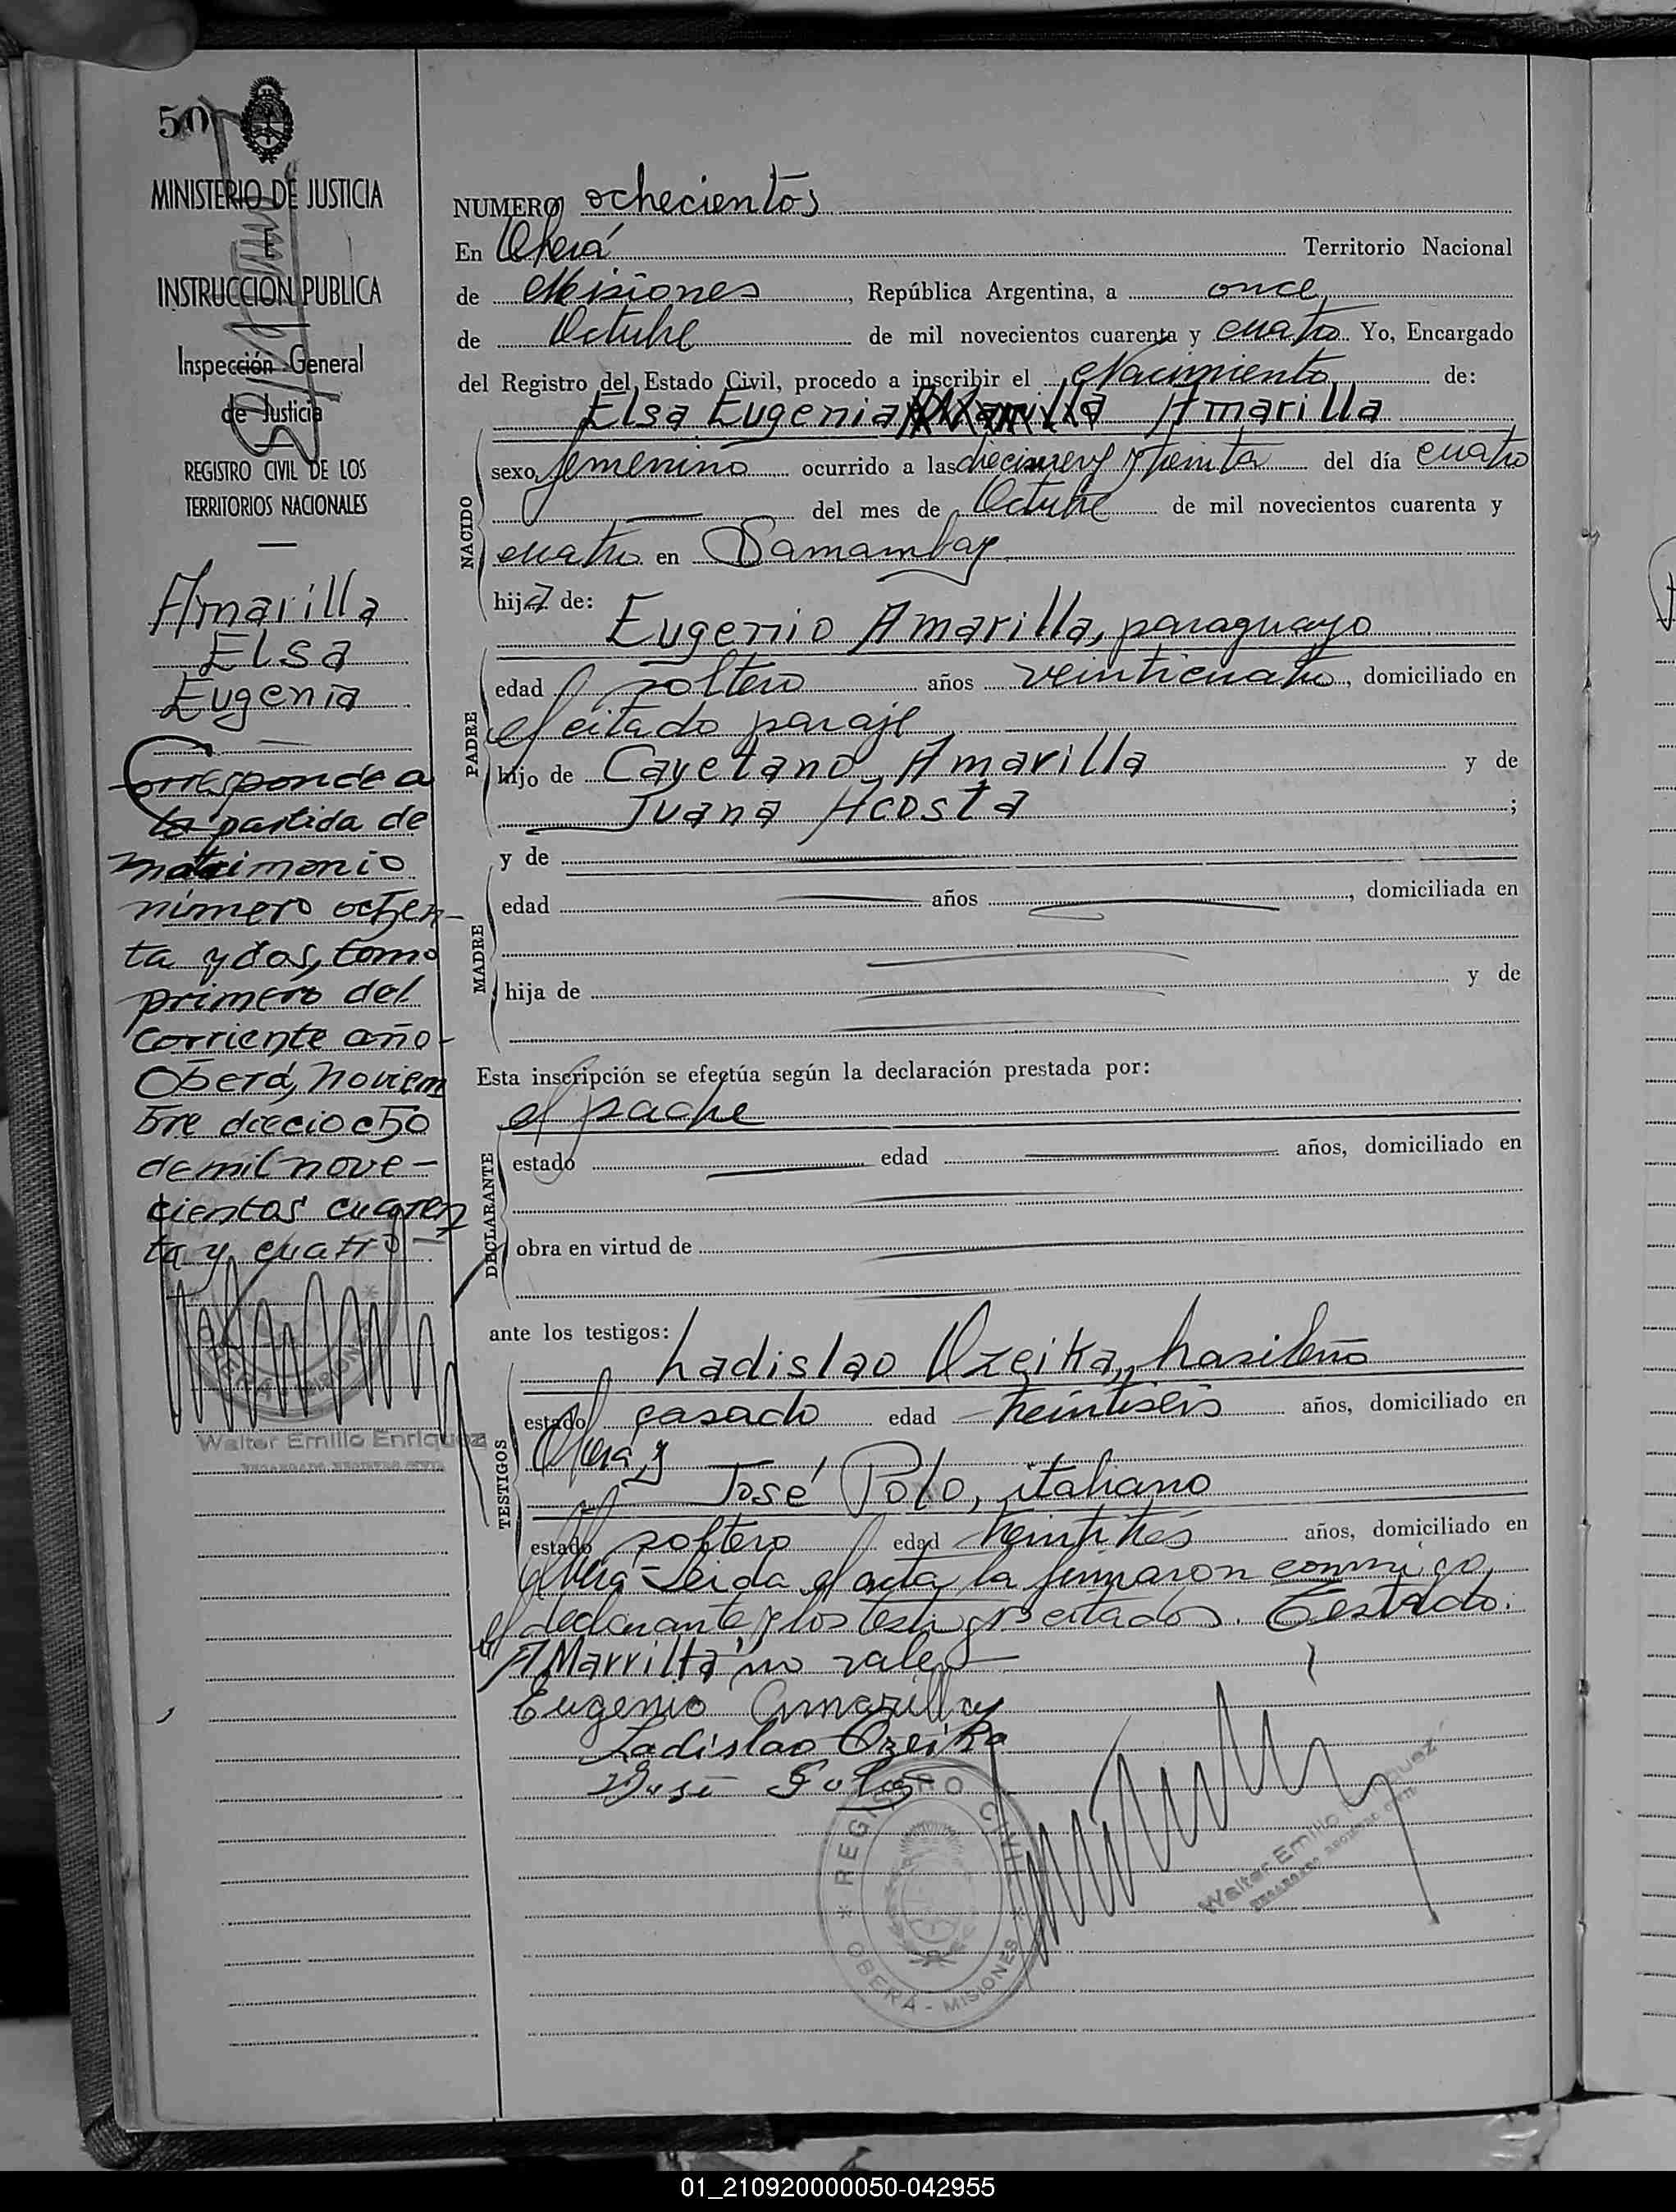 50
MINISTERIO DE JUSTICIA
E
INSTRUCCION PUBLICA
Inspección General
de Justicia
REGISTRO CIVIL DE LOS
TERRITORIOS NACIONALES
Amarilla
Elsa
Eugenia
Corresponde a
la partida de
matrimonio
número ochen-
ta y dos, tomo
primero del
corriente año-
Oberá, noviem
bre dieciocho
de mil nove-
cientos cuaren
ta y cuatro-
Walter Emilio Enriquez
ENCARGADO REGISTRO CIVIL
NUMERO ochecientos
En Oberá Territorio Nacional
de Misiones, República Argentina, a once
de Octubre de mil novecientos cuarenta y cuatro Yo, Encargado
del Registro del Estado Civil, procedo a inscribir el Nacimiento de:
Elsa Eugenia Amarilla
NACIDO
sexo femenino ocurrido a las diecinueve y treinta del día cuatro
del mes de Octubre de mil novecientos cuarenta y
cuatro en Samambay
hija de:
Eugenio Amarilla, paraguayo
PADRE
edad soltero años veinticuatro, domiciliado en
el citado paraje
hijo de Cayetano Amarilla y de
Juana Acosta ;
y de
MADRE
edad años , domiciliada en
hija de y de
Esta inscripción se efectúa según la declaración prestada por:
el padre
DECLARANTE
estado edad años, domiciliado en
obra en virtud de
ante los testigos:
Ladislao Ozeika, brasileño
TESTIGOS
estado casado edad treintiseis años, domiciliado en
Oberá y
José Polo, italiano
estado soltero edad treintitrés años, domiciliado en
Oberá - Leida el acta la firmaron conmigo
el declarante y los testigos citados. Testado:
"AMarrilla" no vale
Eugenio Amarilla
Ladislao Ozeika
José Polo
REGISTRO CIVIL
OBERÁ - MISIONES
Walter Emilio Enriquez
ENCARGADO REGISTRO CIVIL
01_210920000050-042955